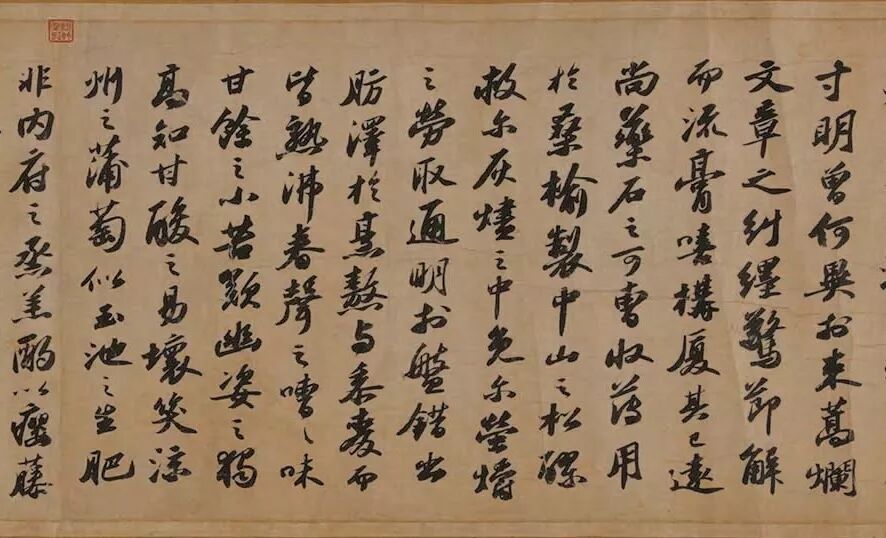 寸明曾何異於束蒿爛
文章之糾纆驚節解
而流膏嘻構廈其已遠
尚藥石之可曹收薄用
於桑榆製中山之松醪
救尔灰燼之中免尔螢爝
之勞取通明於盤錯出
肪澤於烹熬與黍麥而
皆熟沸舂聲之嘈々味
甘餘之小苦歎幽姿之獨
高知甘酸之易壞笑涼
州之蒲萄似玉池之生肥
非內府之蒸羔酌以癭藤